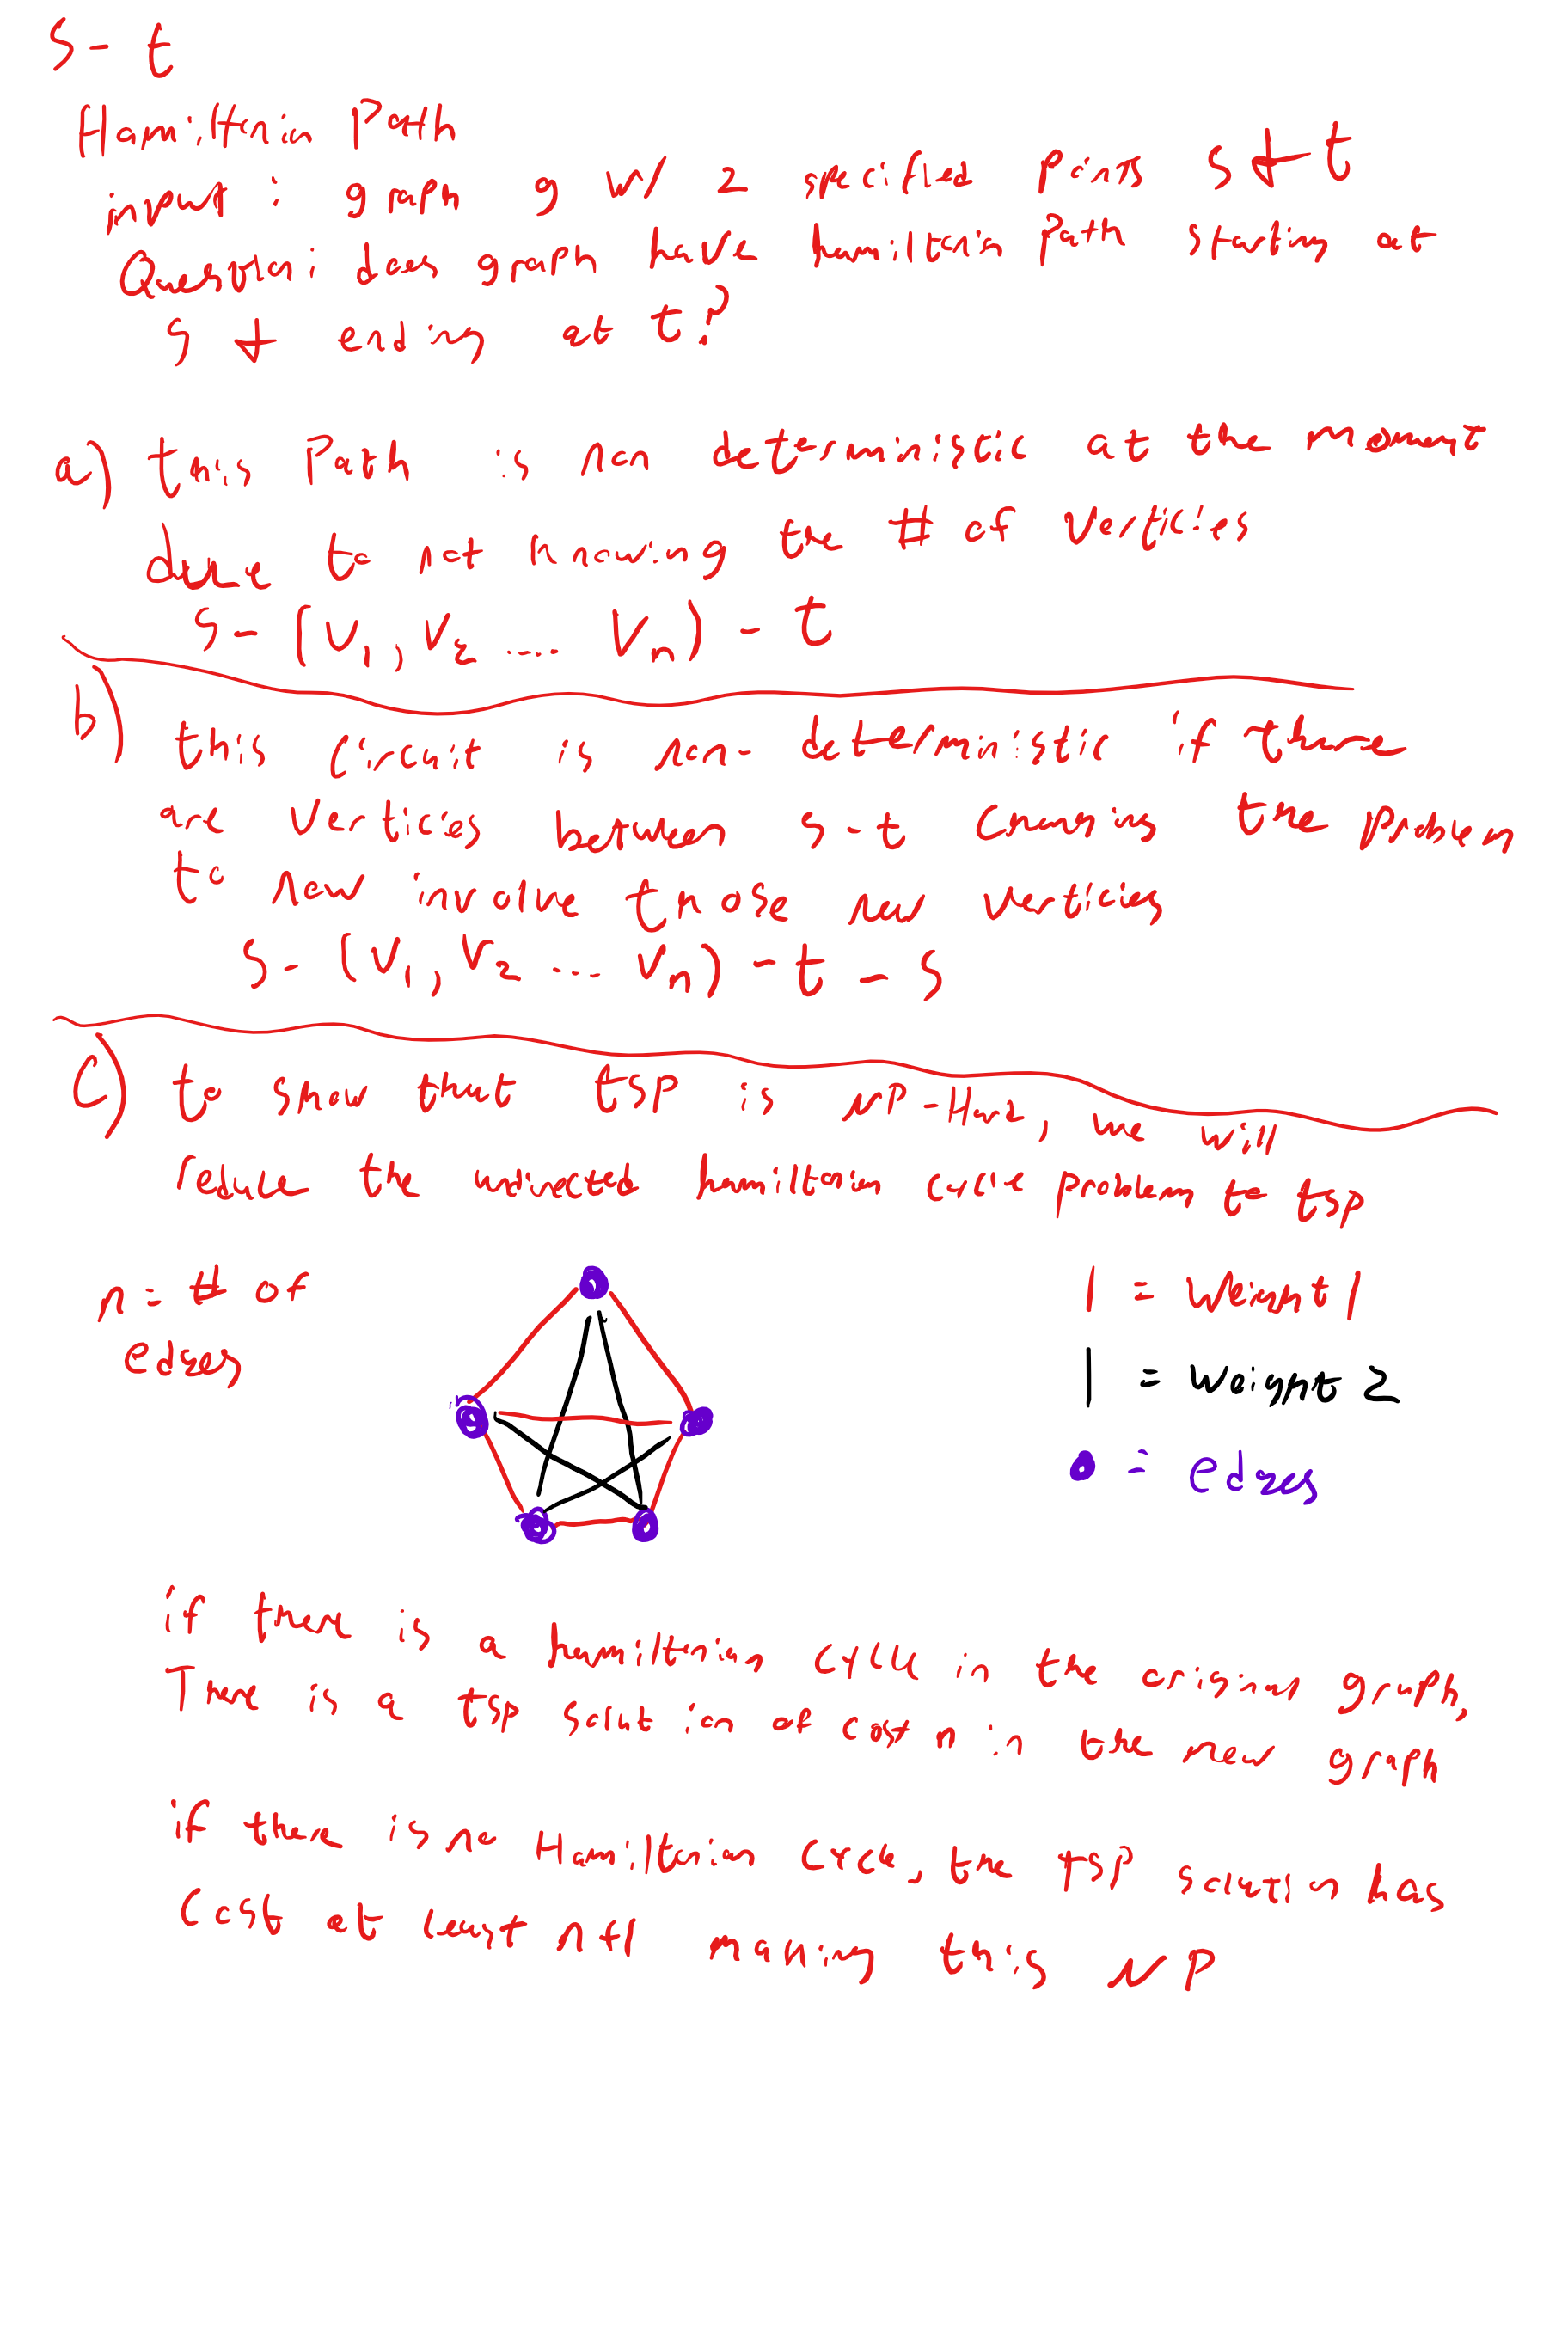 S - t
Hamiltonin Path
input : graph g w/ 2 specified points s + t
Question: does graph have hamiltonin Path starting at
s + ending at t?
a) this Path is non deterministic at the moment
due to not knowing the # of verticies
S - [V1, V2 .... Vn) - t
b) this circuit is non-deterministic if there
are verticies between s-t causing the problem
to now involve those new verticies
S - (V1, V2 .... Vn) - t - S
C) to show that tSP is NP-Hard, we will
reduce the undirected hamiltonian cycle problem to tsp
n = # of
edges
| = Weight 1
| = weight 2
= edges
if there is a hamiltonian cycle in the original graph,
There is a tsp solution of cost n in the new graph
if there is no Hamiltonian Cycle, the tSP solution has
Cost at least n+1 making this NP